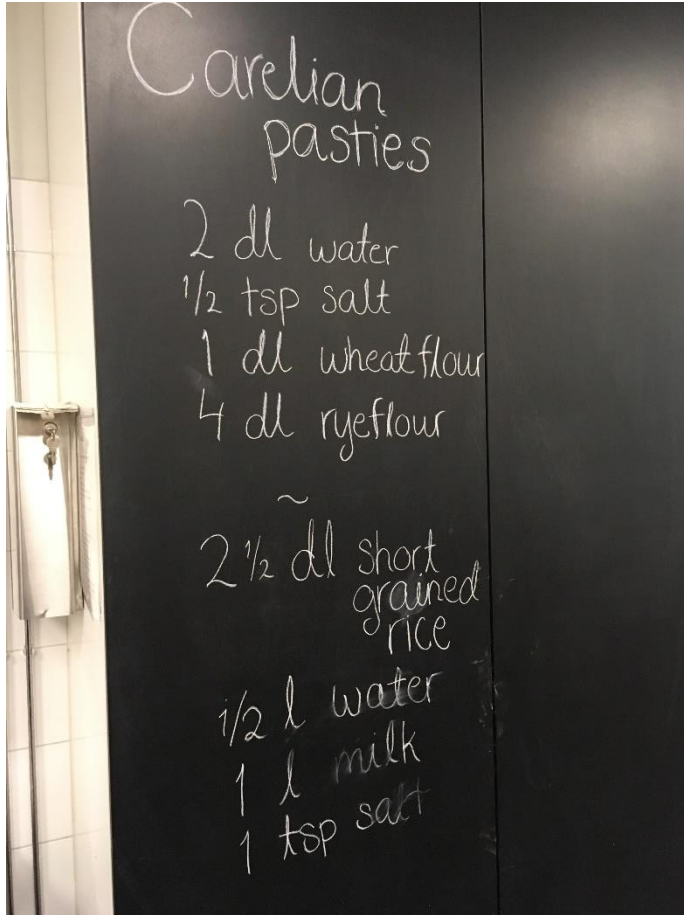 Carelian
pasties
2 dl water
1/2 tsp salt
1 dl wheatflour
4 dl ryeflour
~
2 1/2 dl short
grained
rice
1/2 l water
1 l milk
1 tsp salt